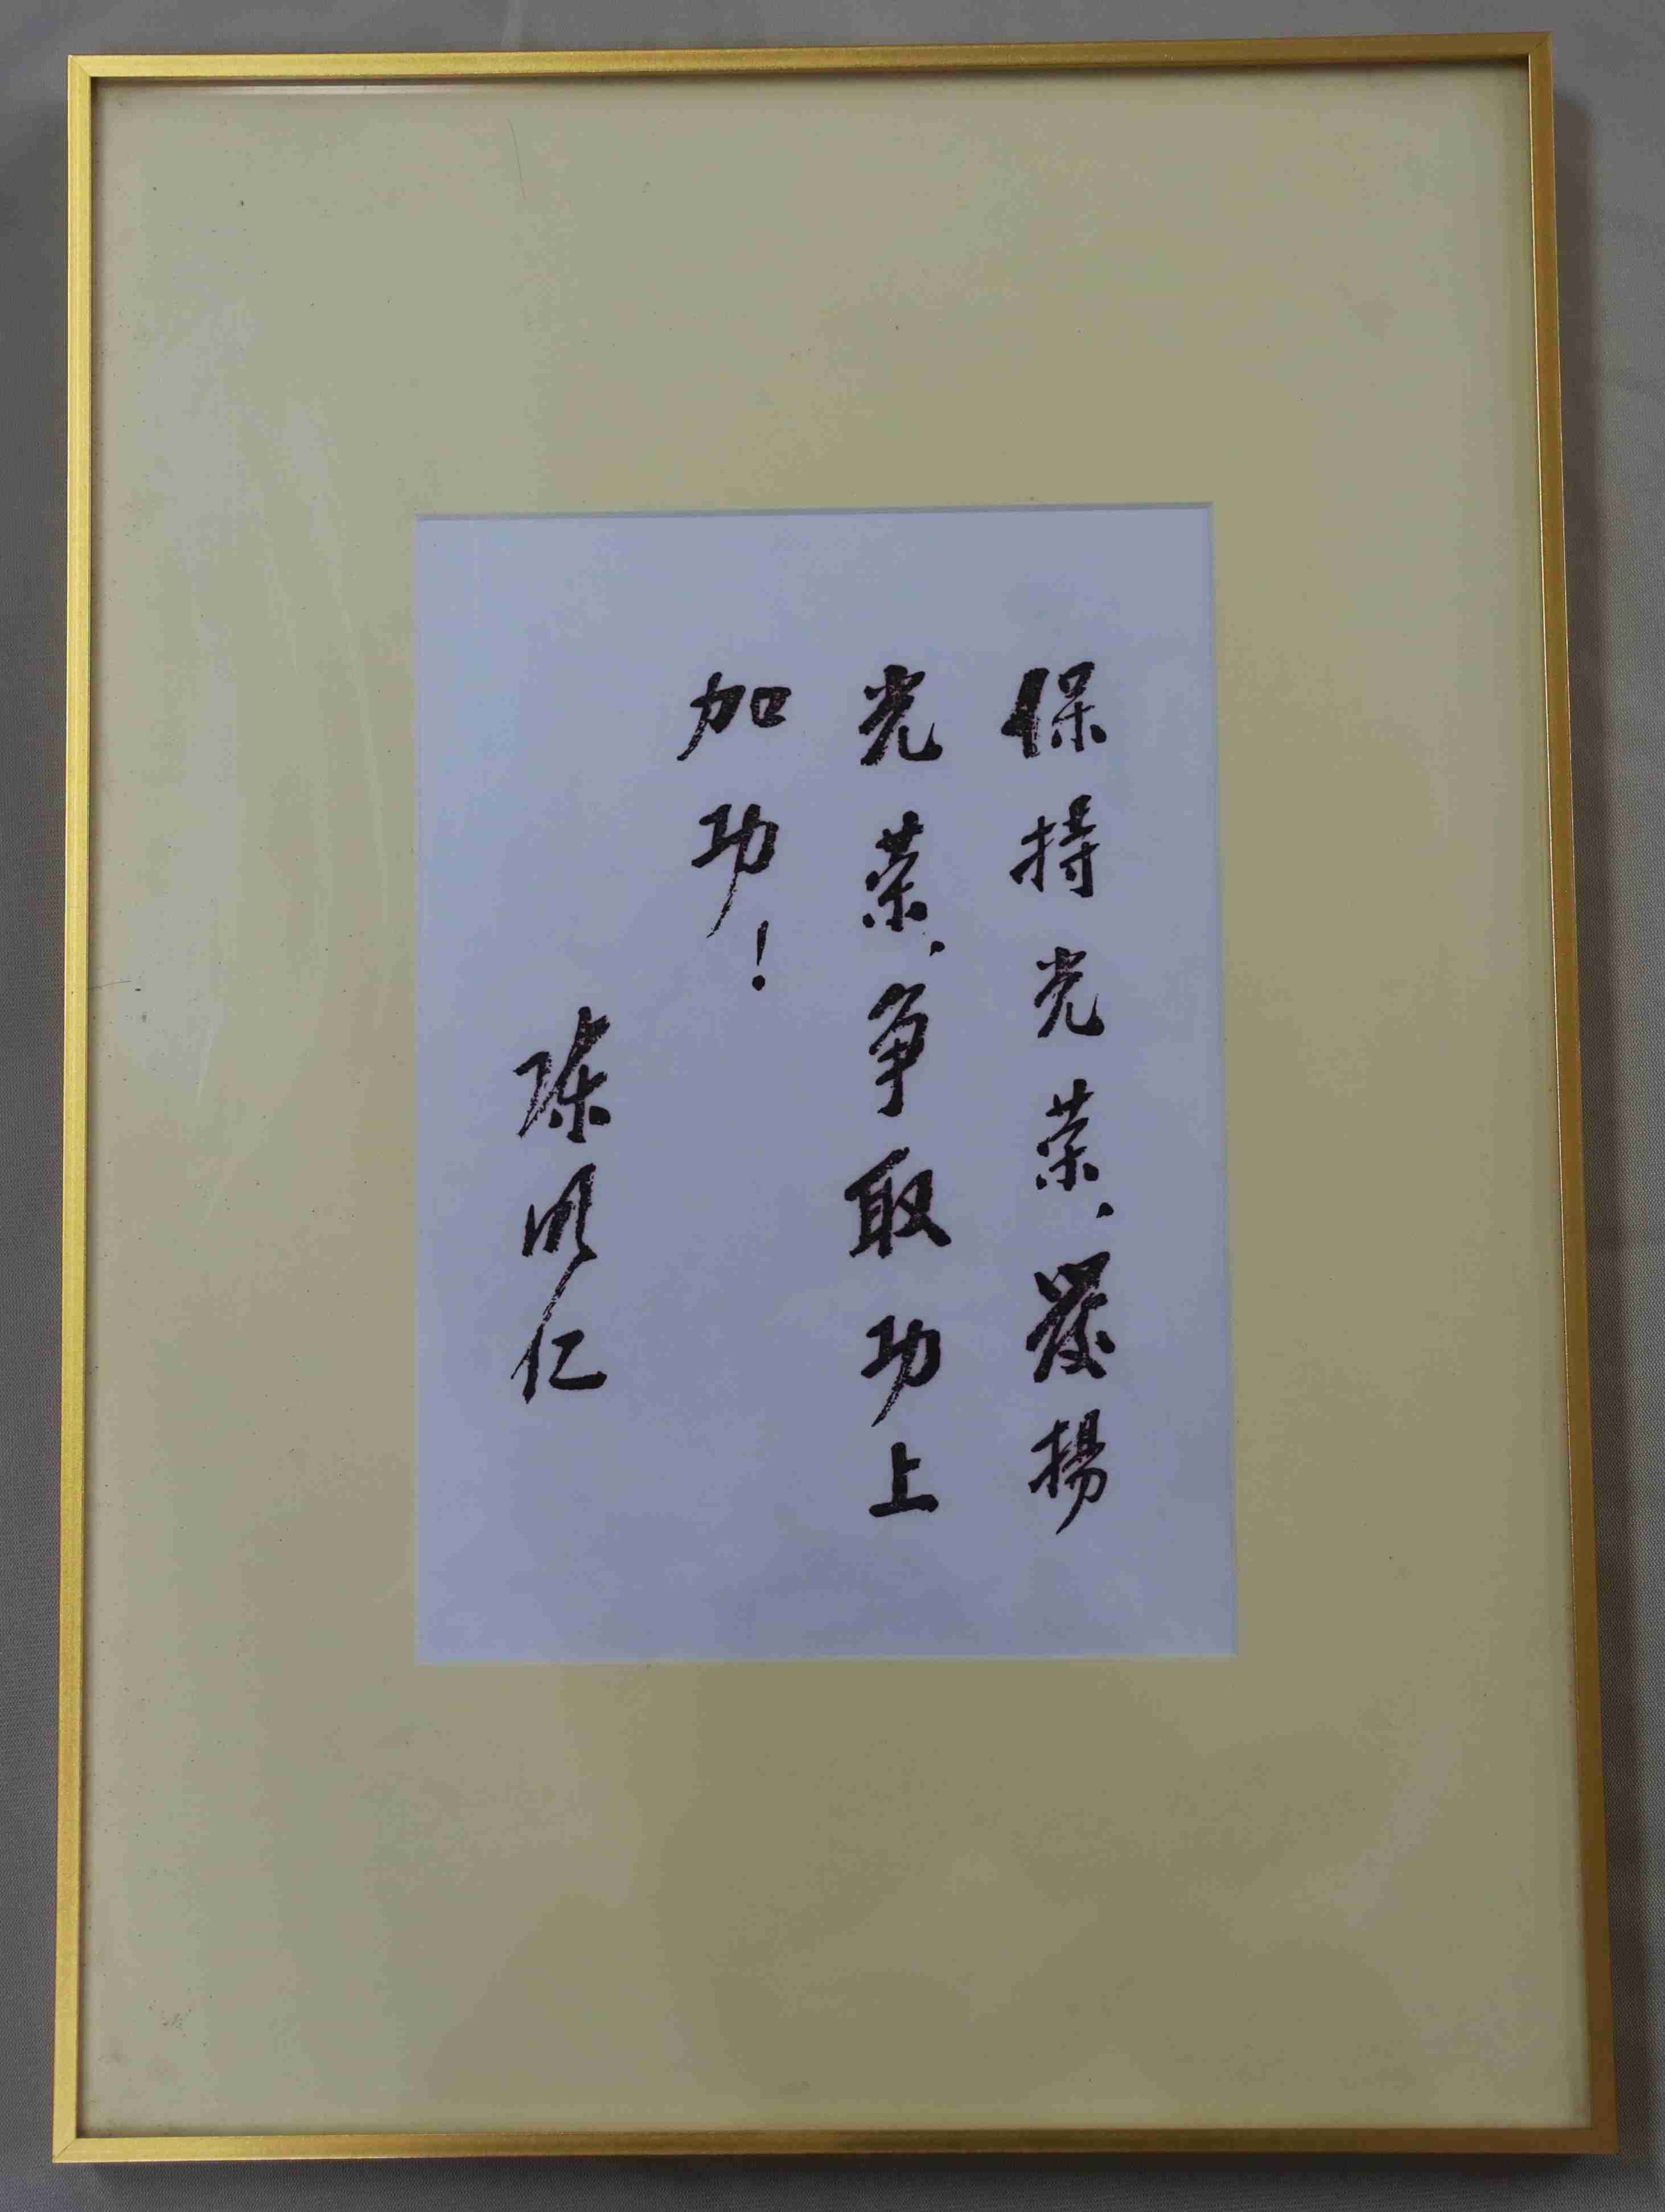 保持光荣、發揚
光荣、争取功上
加功！
陈明仁